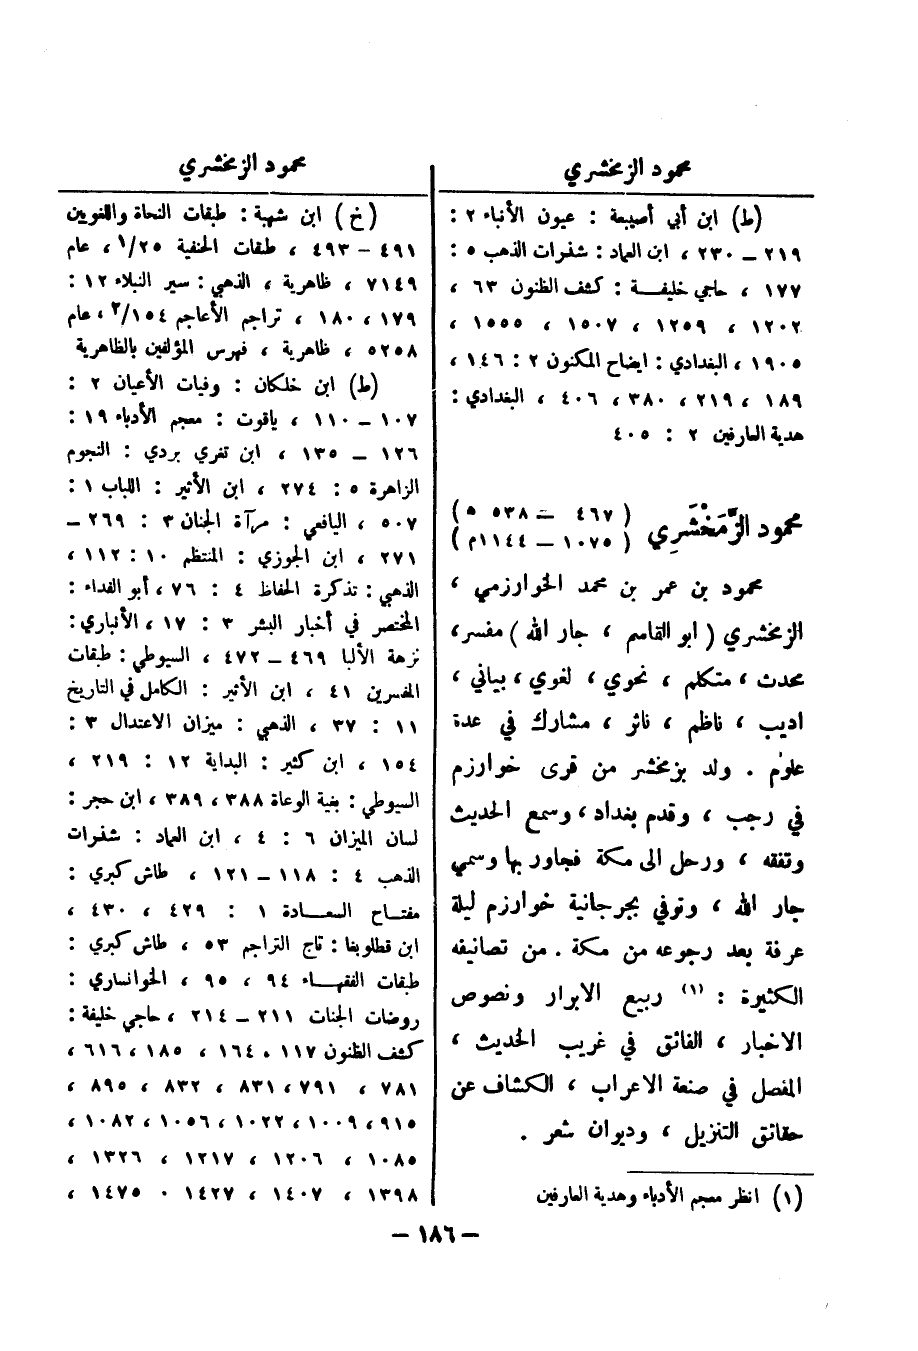 محمود الزمخشري
(ط) ابن أبي أصيبعة : عيون الأنباء ٢ :
٢١٩ – ٢٣٠ ، ابن العماد : شذرات الذهب ٥ :
١٧٧ ، حاجي خليفة : كشف الظنون ٦٣ ،
١٢٠٢ ، ١٢٥٩ ، ١٥٠٧ ، ١٥٥٥ ،
١٩٠٥ ، البغدادي : ايضاح المكنون ٢ : ١٤٦ ،
١٨٩ ، ٢١٩ ، ٣٨٠ ، ٤٠٦ ، البغدادي :
هدية العارفين ٢ : ٤٠٥
محمود الزَّمَخْشَرِي ( ٤٦٧ – ٥٣٨ ه )
( ١٠٧٥ – ١١٤٤م )
محمود بن عمر بن محمد الخوارزمي ،
الزمخشري ( ابو القاسم ، جار الله ) مفسر،
محدث ، متكلم ، نحوي ، لغوي ، بياني ،
اديب ، ناظم ، ناثر ، مشارك في عدة
علوم . ولد بزمخشر من قرى خوارزم
في رجب ، وقدم بغداد ، وسمع الحديث
وتفقه ، ورحل الى مكة فجاور بها وسمي
جار الله ، وتوفي بجرجانية خوارزم ليلة
عرفة بعد رجوعه من مكة . من تصانيفه
الكثيرة : (١) ربيع الابرار ونصوص
الاخبار ، الفائق في غريب الحديث ،
المفصل في صنعة الاعراب ، الكشاف عن
حقائق التنزيل ، وديوان شعر .
(١) انظر معجم الأدباء وهدية العارفين
محمود الزمخشري
(خ) ابن شهبة : طبقات النحاة واللغويين
٤٩١ – ٤٩٣ ، طبقات الحنفية ١/٢٥ ، عام
٧١٤٩ ، ظاهرية ، الذهبي : سير النبلاء ١٢ :
١٧٩ ، ١٨٠ ، تراجم الأعاجم ٢/١٥٤ ، عام
٥٢٥٨ ، ظاهرية ، فهرس المؤلفين بالظاهرية
(ط) ابن خلكان : وفيات الأعيان ٢ :
١٠٧ – ١١٠ ، ياقوت : معجم الأدباء ١٩ :
١٢٦ – ١٣٥ ، ابن تغري بردي : النجوم
الزاهرة ٥ : ٢٧٤ ، ابن الأثير : اللباب ١ :
٥٠٧ ، اليافعي : مرآة الجنان ٣ : ٢٦٩ –
٢٧١ ، ابن الجوزي : المنتظم ١٠ : ١١٢ ،
الذهبي : تذكرة الحفاظ ٤ : ٧٦ ، أبو الفداء :
المختصر في أخبار البشر ٣ : ١٧ ، الأنباري :
نزهة الألبا ٤٦٩ – ٤٧٢ ، السيوطي : طبقات
المفسرين ٤١ ، ابن الأثير : الكامل في التاريخ
١١ : ٣٧ ، الذهبي : ميزان الاعتدال ٣ :
١٥٤ ، ابن كثير : البداية ١٢ : ٢١٩ ،
السيوطي : بغية الوعاة ٣٨٨ ، ٣٨٩ ، ابن حجر :
لسان الميزان ٦ : ٤ ، ابن العماد : شذرات
الذهب ٤ : ١١٨ – ١٢١ ، طاش كبري :
مفتاح السعادة ١ : ٤٢٩ ، ٤٣٠ ،
ابن قطلوبغا : تاج التراجم ٥٣ ، طاش كبري :
طبقات الفقهاء ٩٤ ، ٩٥ ، الخوانساري :
روضات الجنات ٢١١ – ٢١٤ ، حاجي خليفة :
كشف الظنون ١١٧ ، ١٦٤ ، ١٨٥ ، ٦١٦ ،
٧٨١ ، ٧٩١ ، ٨٣١ ، ٨٣٢ ، ٨٩٥ ،
٩١٥ ، ١٠٠٩ ، ١٠٢٢ ، ١٠٥٦ ، ١٠٨٢ ،
١٠٨٥ ، ١٢٠٦ ، ١٢١٧ ، ١٣٢٦ ،
١٣٩٨ ، ١٤٠٧ ، ١٤٢٧ ، ١٤٧٥ ،
– ١٨٦ –